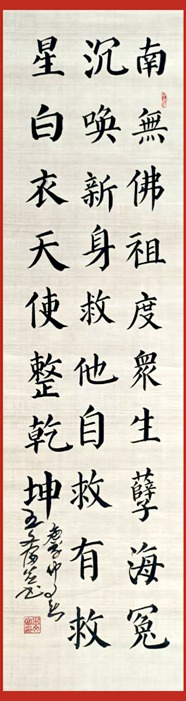 南無佛祖度眾生孽海冤
沉喚新身救他自救有救
星白衣天使整乾坤